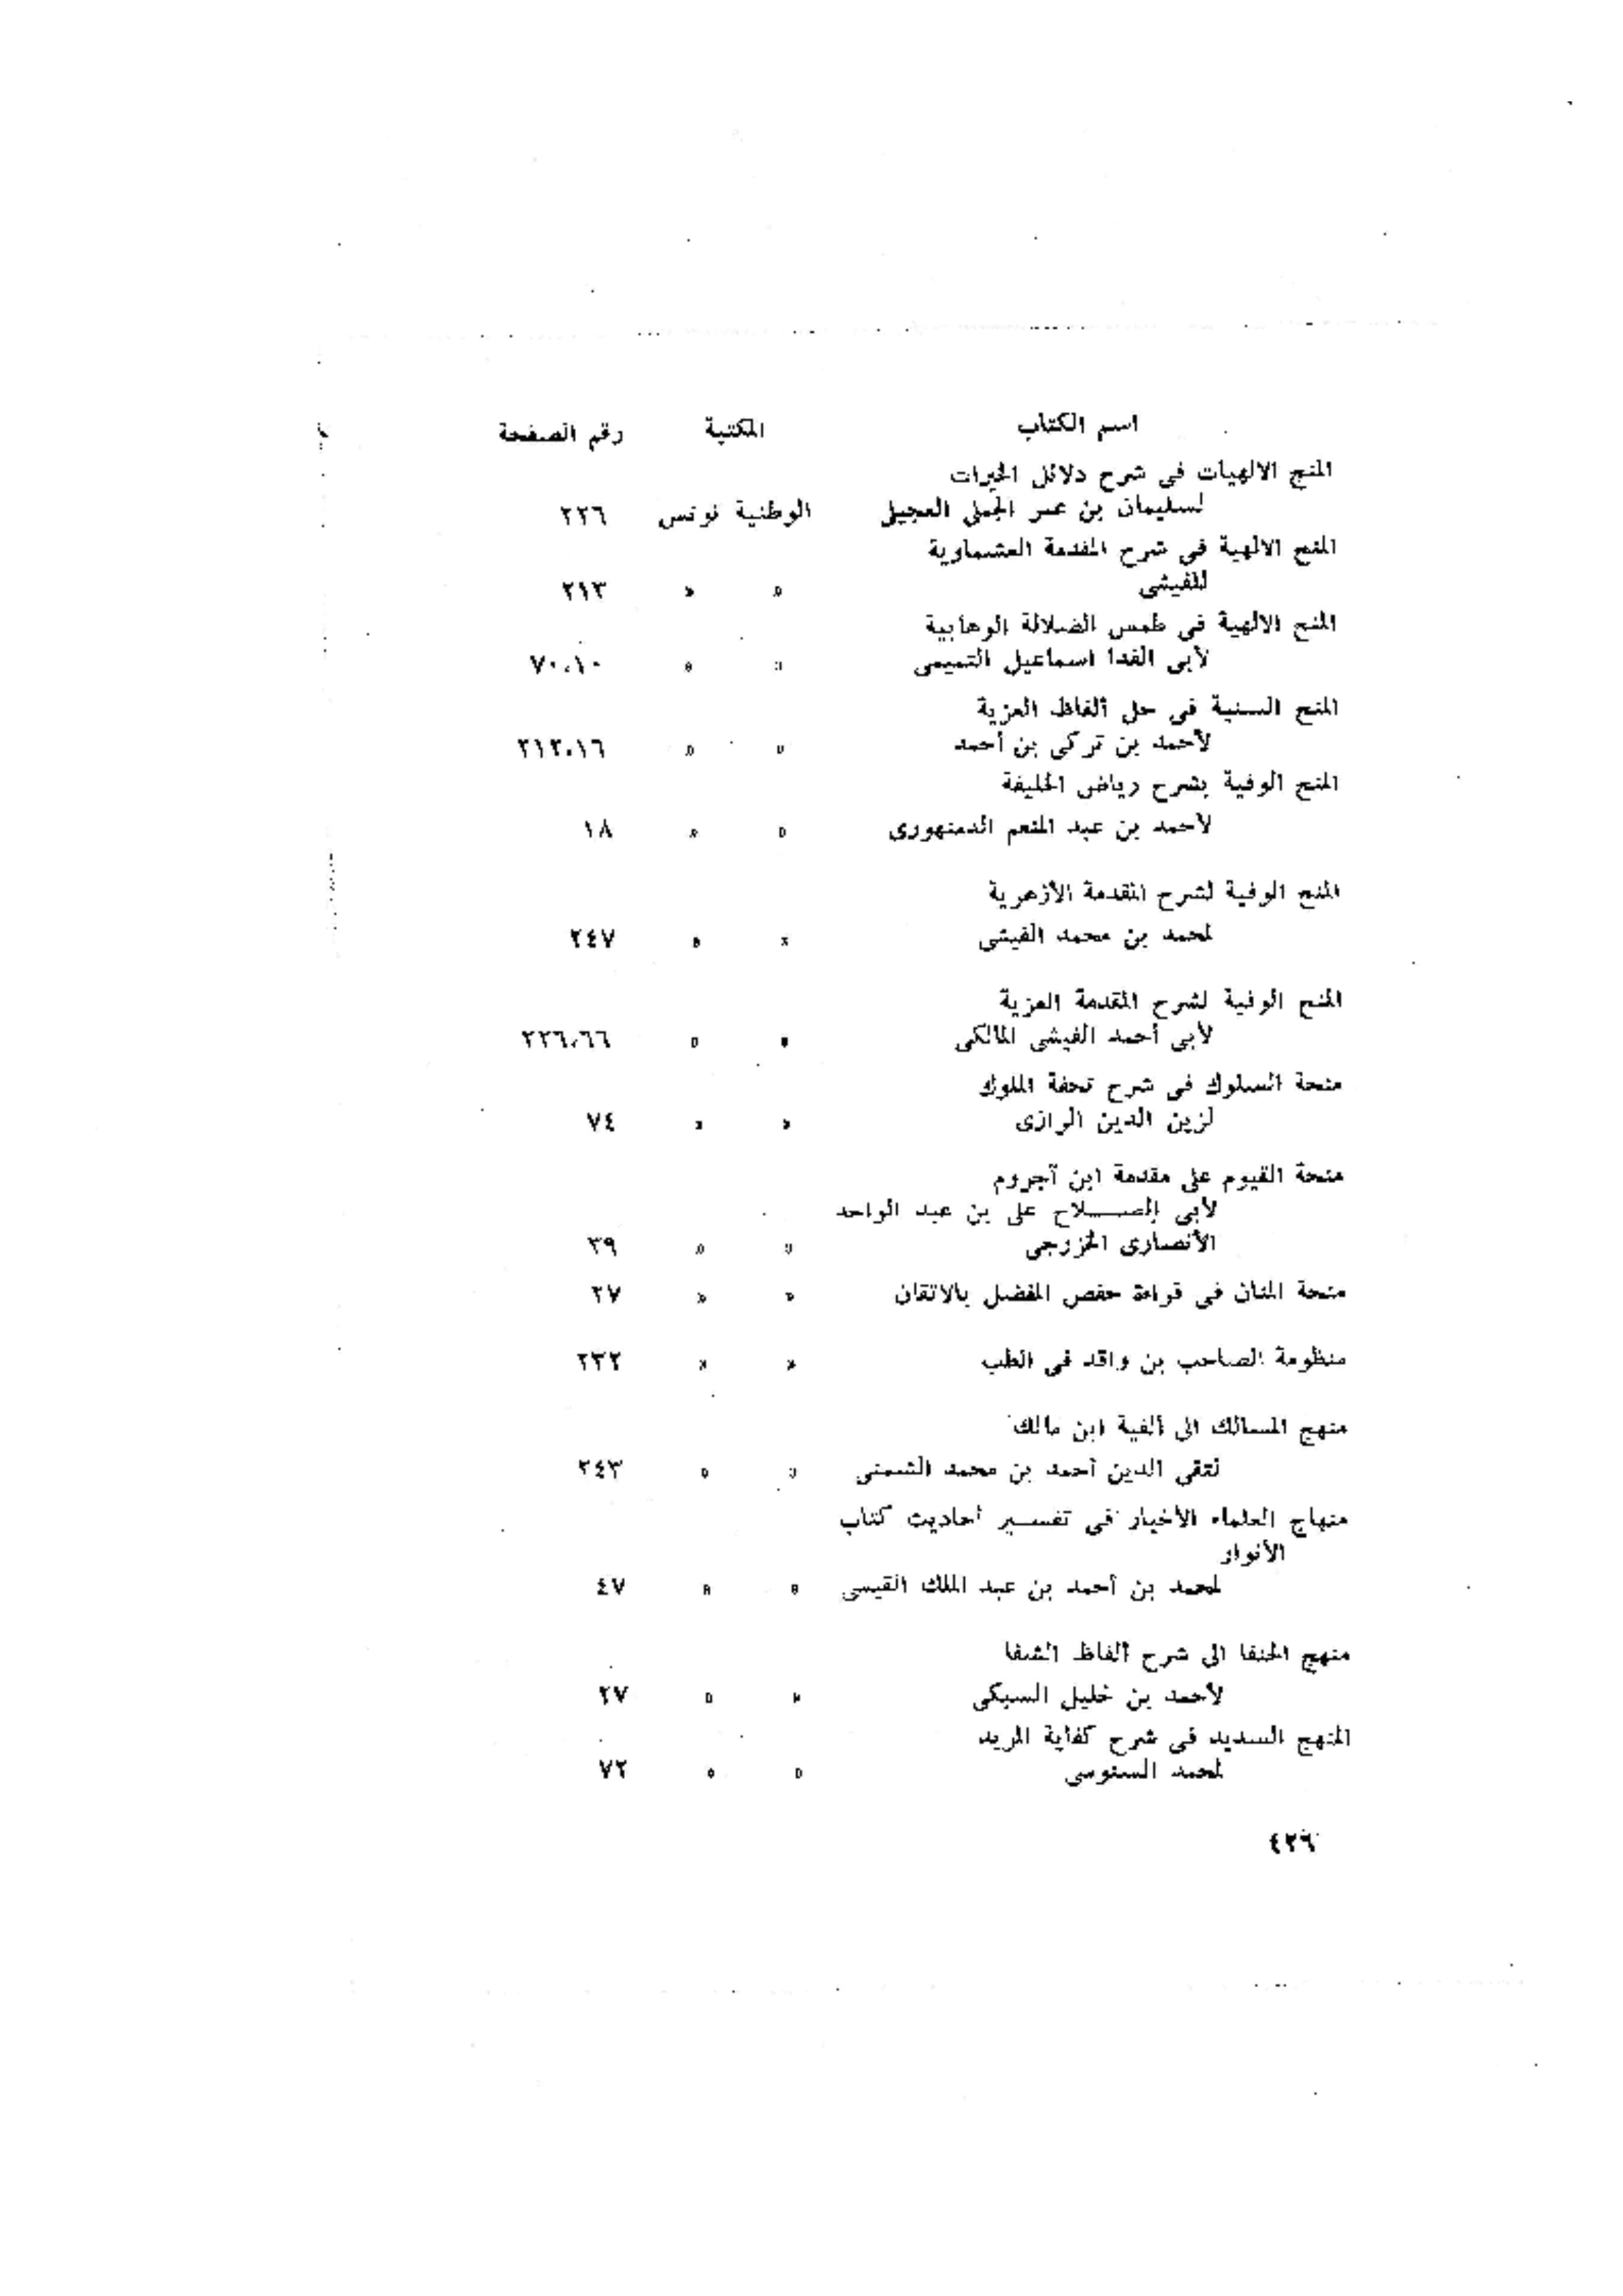 اسم الكتاب المكتبة رقم الصفحة
المنح الالهيات فى شرح دلائل الخيرات
لسليمان بن عمر الجمل العجيل الوطنية تونس ٢٢٦
المنح الالهية فى شرح المقدمة العشماوية
للفيشى » » ٢١٣
المنح الالهية فى طمس الضلالة الوهابية
لأبى الفدا اسماعيل التميمى » » ٧٠،١٠
المنح السنية فى حل ألفاظ العزية
لأحمد بن تركى بن أحمد » » ٢١٢،١٦
المنح الوفية بشرح رياض الخليفة
لأحمد بن عبد المنعم الدمنهورى » » ١٨
المنح الوفية لشرح المقدمة الأزهرية
لمحمد بن محمد الفيشى » » ٢٤٧
المنح الوفية لشرح المقدمة العزية
لأبى أحمد الفيشى المالكى » » ٢٢٦،٦٦
منحة السلوك فى شرح تحفة الملوك
لزين الدين الرازى » » ٧٤
منحة القيوم على مقدمة ابن آجروم
لأبى الصــلاح على بن عبد الواحد
الأنصارى الخزرجى » » ٣٩
منحة المنان فى قراءة حفص المفضل بالاتقان » » ٢٧
منظومة الصاحب بن واقد فى الطب » » ٢٣٢
منهج المسالك الى ألفية ابن مالك
لتقى الدين أحمد بن محمد الشمنى » » ٢٤٣
منهاج العلماء الأخيار فى تفســير أحاديث كتاب
الأنوار
لمحمد بن أحمد بن عبد الملك القيسى » » ٤٧
منهج الحنفا الى شرح ألفاظ الشفا
لأحمد بن خليل السبكى » » ٢٧
المنهج السديد فى شرح كفاية المريد
لمحمد السنوسى » » ٧٢
٤٢٦